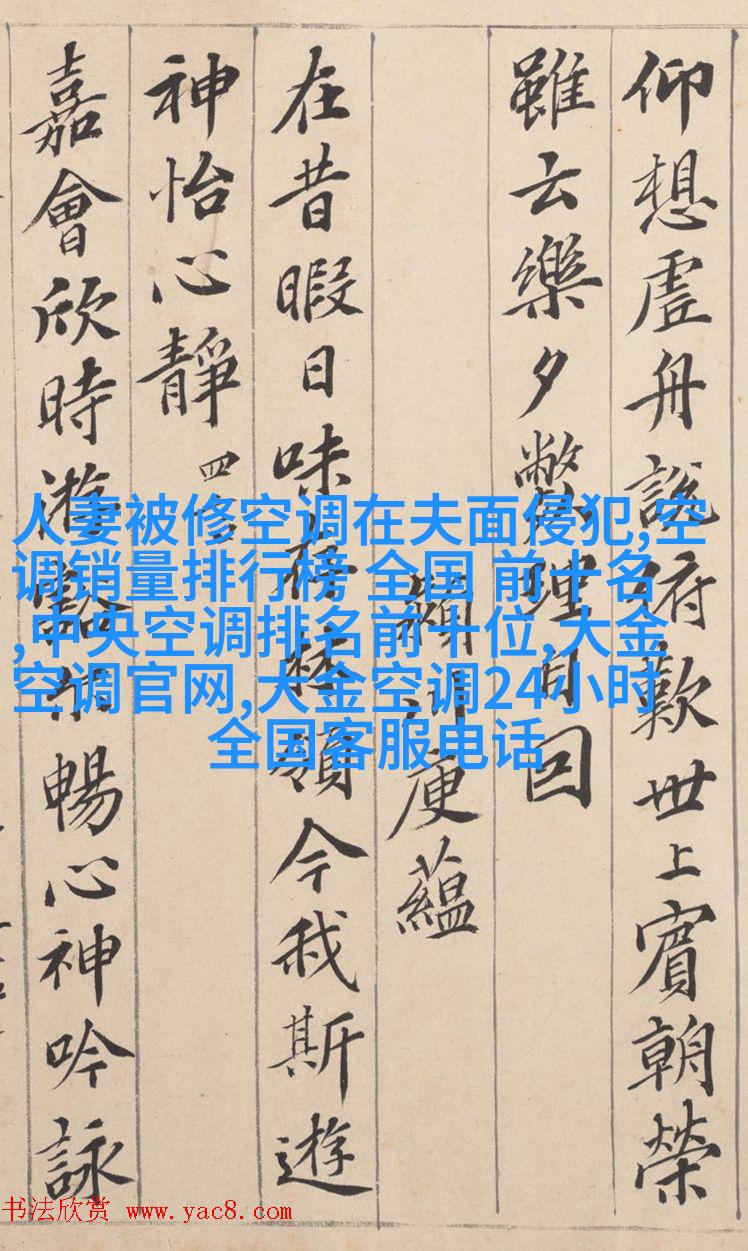 仰想虛舟說俯歎世上賓朝榮
雖云樂夕弊理自回
潁川庾蘊
在昔暇日味存林嶺今我斯遊
神怡心靜 四言
嘉會欣時游豁朗暢心神吟詠
人妻被修空调在夫面侵犯,空
调销量排行榜 全国 前十名
,中央空调排名前十位,大金
空调官网,大金空调24小时
全国客服电话
书法欣赏 www.yac8.com